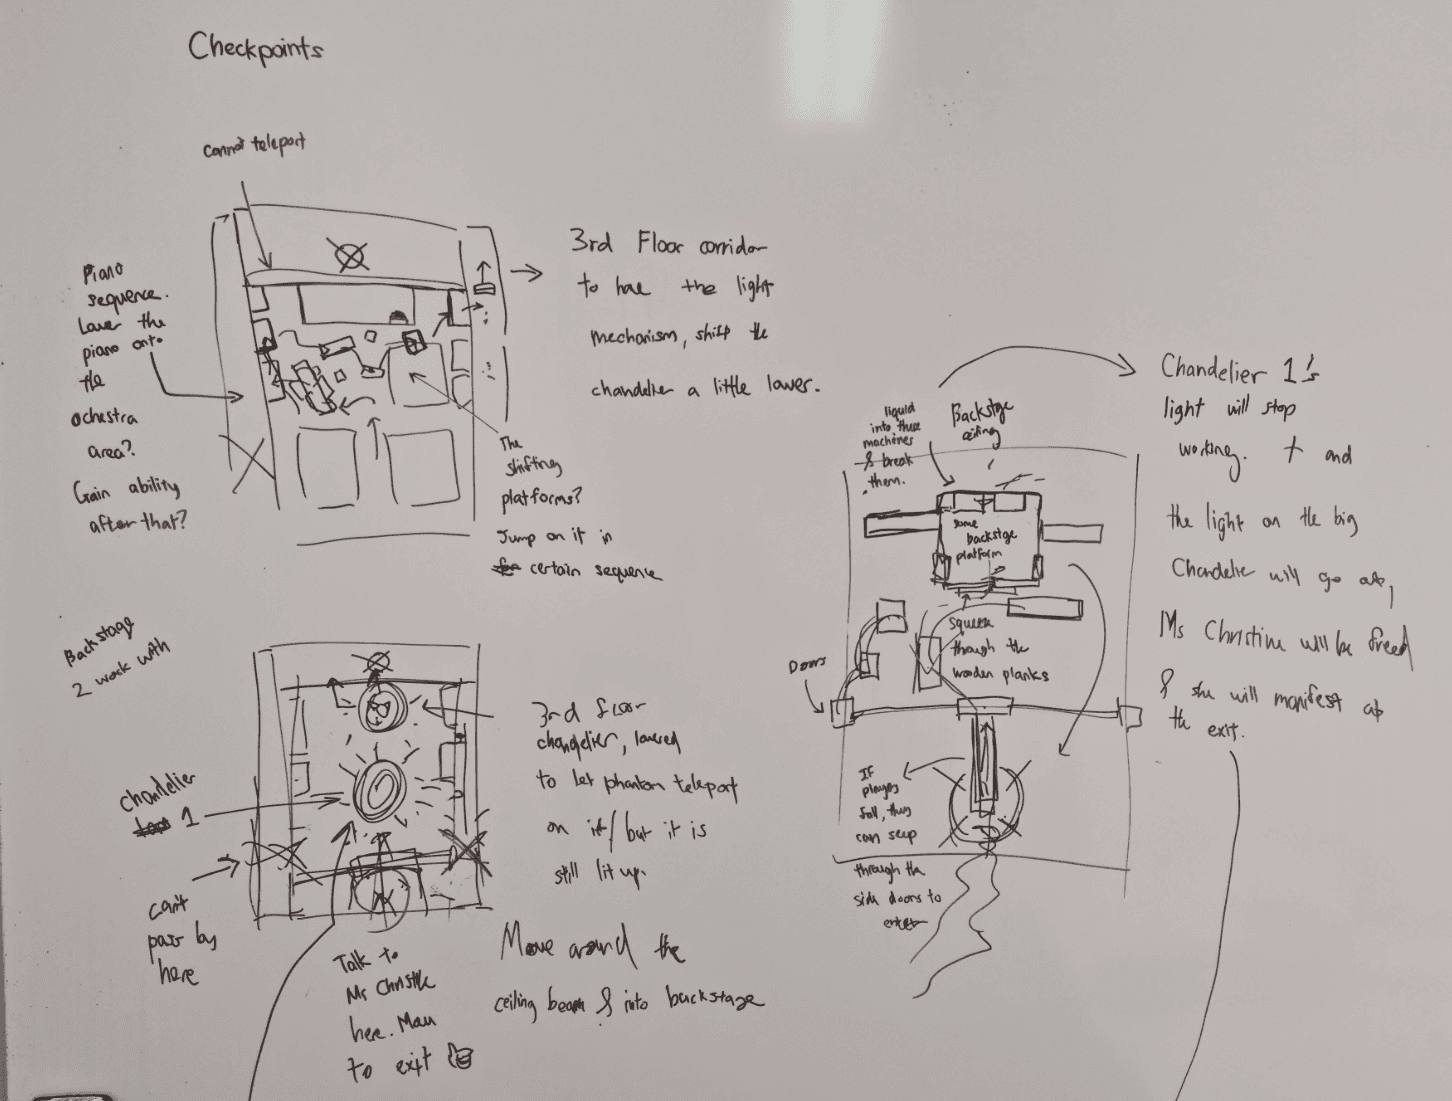 Checkpoints
cannot teleport
Piano
sequence.
Lower the
piano onto
the
ochestra
area?
Gain ability
after that?
3rd Floor corridor
to have the light
mechanism, shift the
chandelier a little lower.
The
shifting
platforms?
Jump on it in
certain sequence
Backstage
2 work with
Chandelier
1
can't
pass by
here
3rd floor
chandelier, lowered
to let phantom teleport
on it/but it is
still lit up.
Talk to
Ms Christine
here.
to exit
Move around the
ceiling beam & into backstage
liquid
into these
machines
& break
them.
Backstage
ceiling
some
backstage
platform
squeeze
through the
wooden planks
Doors
If
players
fall, they
can seep
through the
side doors to
enter
Chandelier 1's
light will stop
working. and
the light on the big
Chandelier will go out,
Ms Christine will be freed
& she will manifest at
the exit.